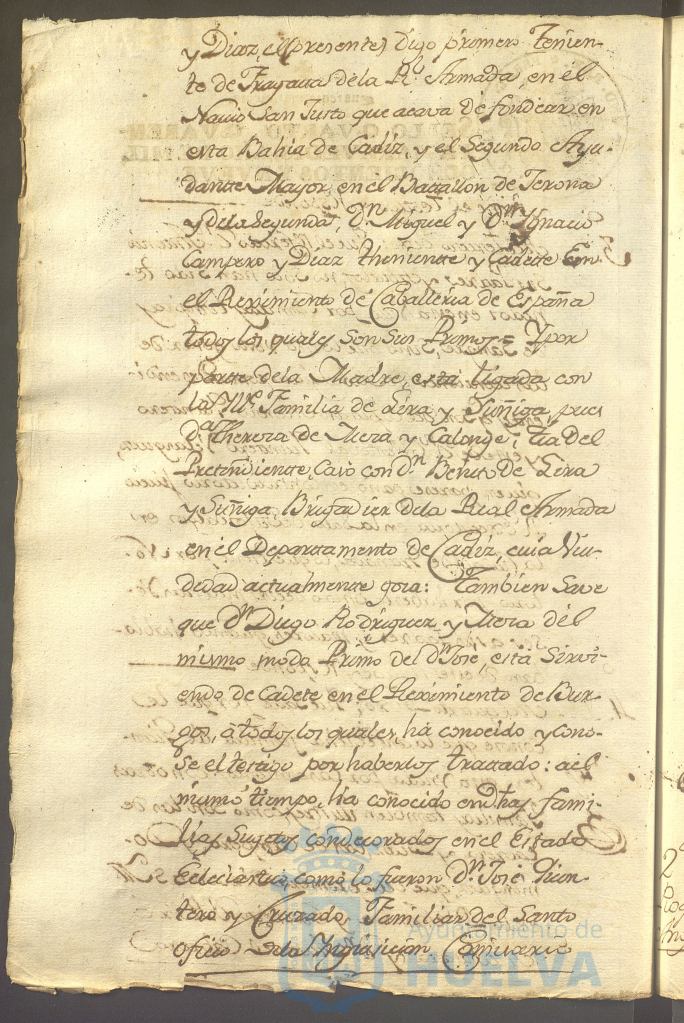 y Diaz, el (presente) digo primero Tenien-
te de Fragata dela Rl. Armada, en el
Navio San Justo que acava de fondear en
esta Bahia de Cadiz, y el Segundo Ayu-
dantte Mayor en el Battallon de Jerona
y dela Segunda, Dn. Miguel y Dn. Ygnacio
Campero y Diaz theniente y Cadete En
el Reximiento de Caballeria de España
todos los quales son sus Primos = Y por
partte dela Madre, está ligada con
la Familia de Lira y Suñiga, pues
Da. Theresa de Mera y Calonge, tia del
Pretendiente, Casó con Dn. Benito de Lira
y Suñiga, Brigadier dela Real Armada
en el Departamento de Cadiz, cuia Viu-
dedad actualmente goza: Tambien save
que Dn. Diego Rodriguez y Mera del
mismo modo Primo del Dn. Jose, está sirvi-
endo de Cadete en el Reximiento de Bur-
gos, á todos los quales, há conocido y cono-
se el testigo por haberlos trattado: al
mismo tiempo, há conocido en dhas. fami-
lias Sugetos condecorados en el Estado
Eclesiastico, como lo fueron Dn. Jose Quin-
tero y Cruzado, Familiar del Santo
oficio dela Inquisición
Ayuntamiento de
HUELVA